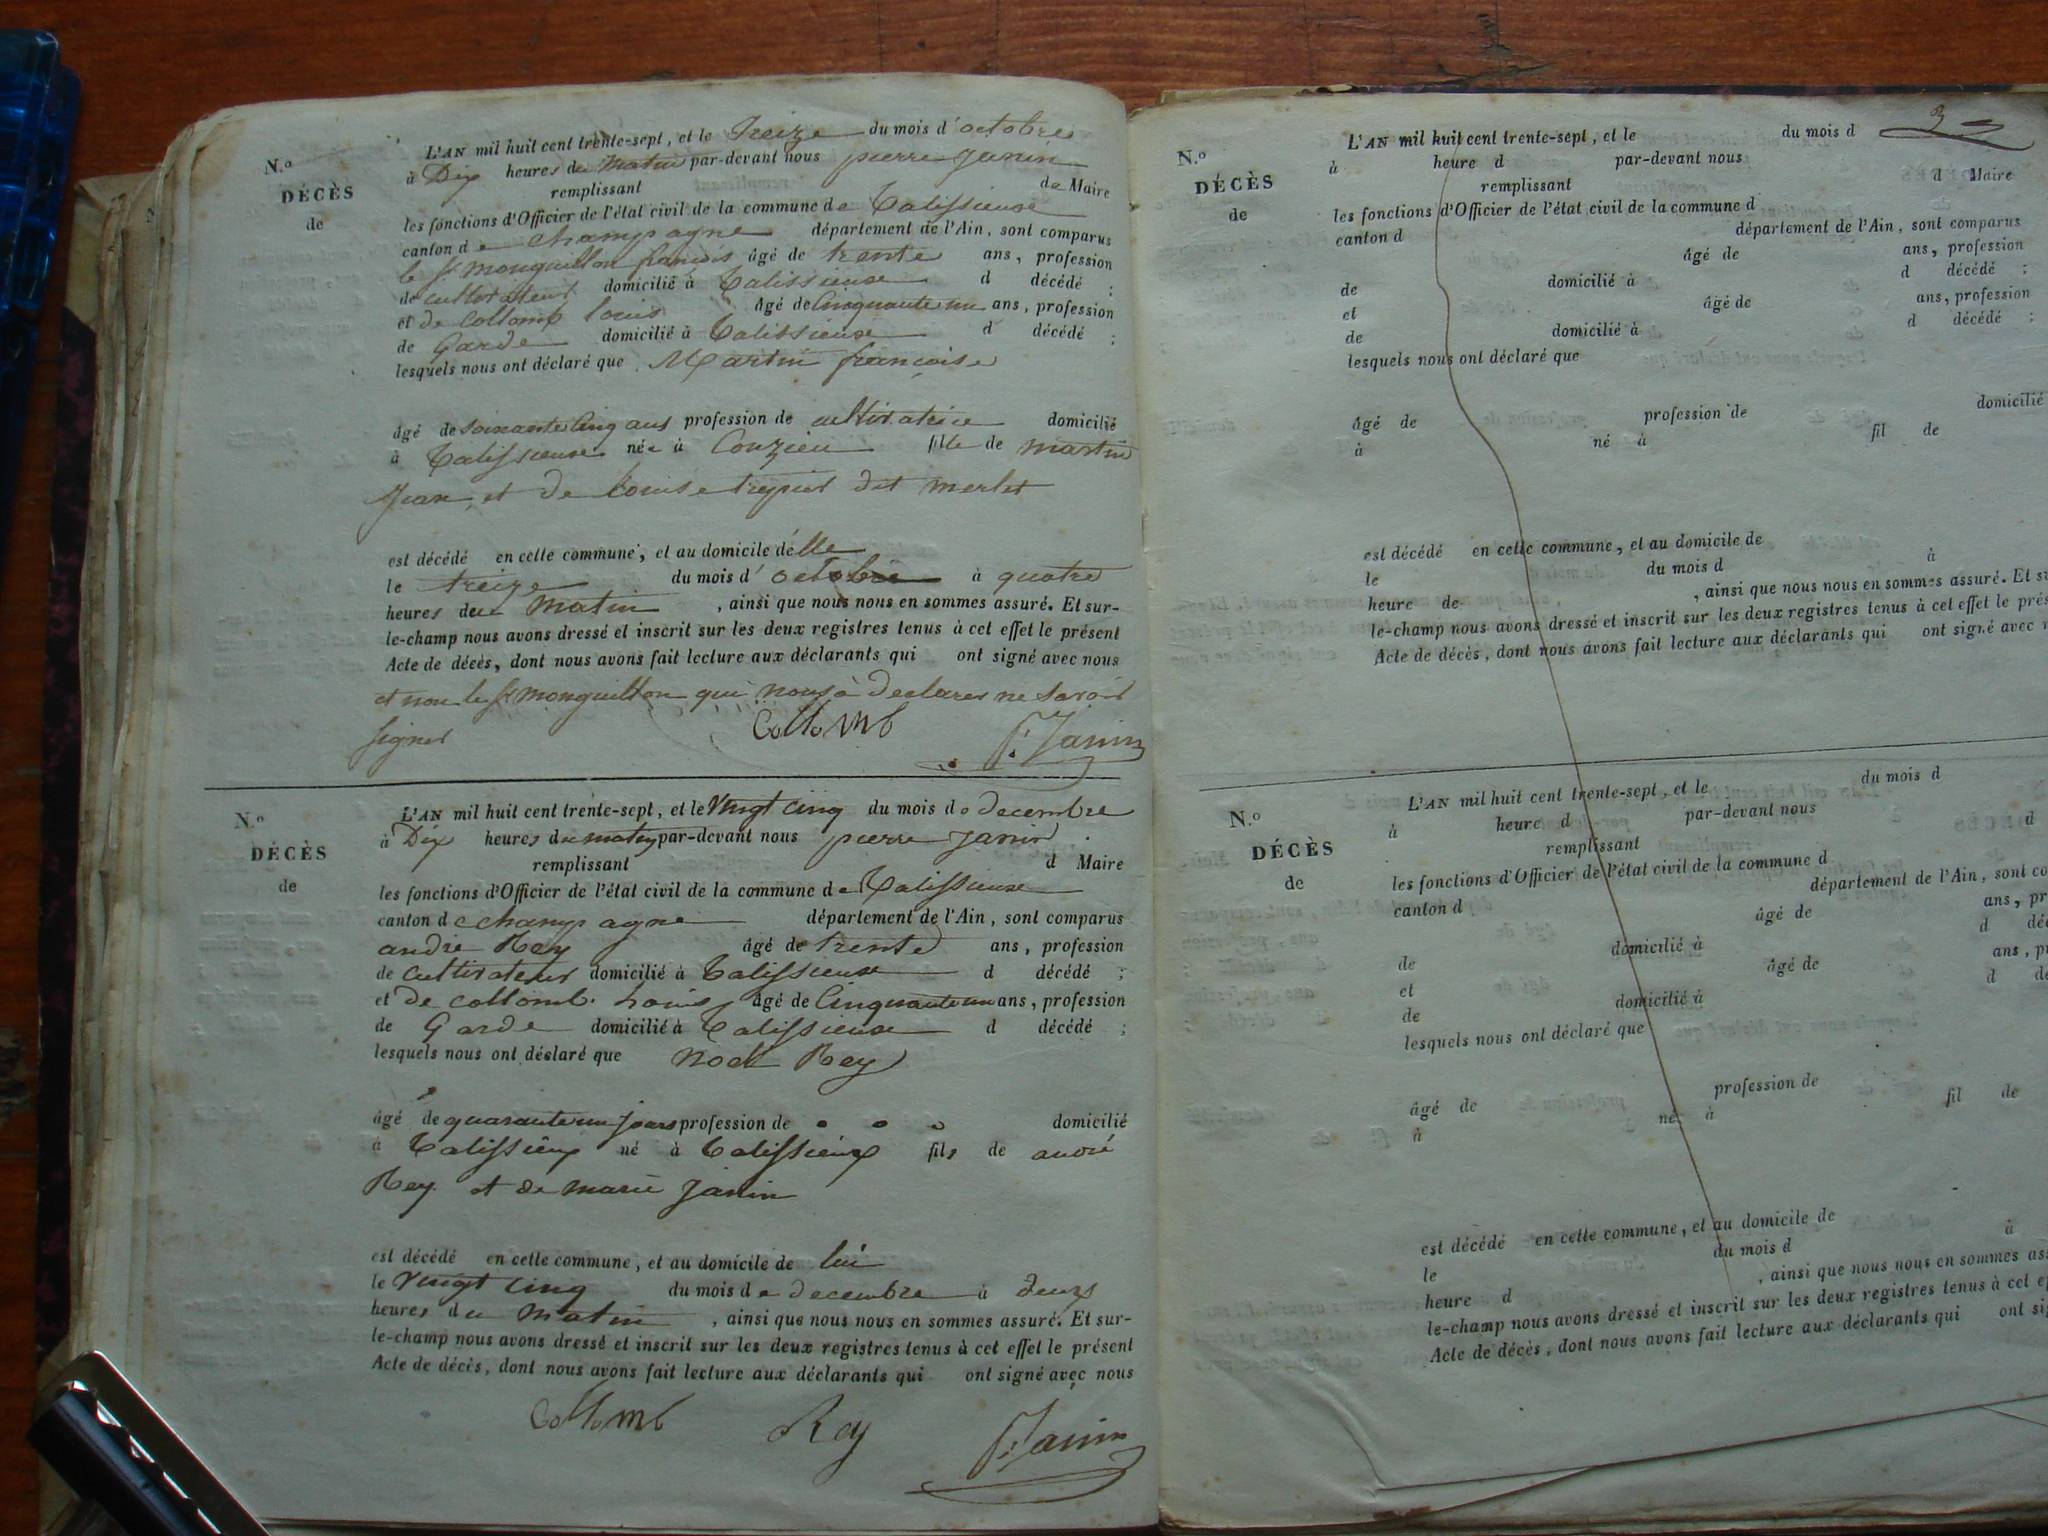 N.o
DÉCÈS
de
L'AN mil huit cent trente-sept, et le Treize du mois d'octobre
à Dix heures du matin par-devant nous pierre Janin
remplissant de Maire
les fonctions d'Officier de l'état civil de la commune de Talissieuse
canton de champagne département de l'Ain, sont comparus
le sr monguillon françois âgé de trente ans, profession
de cultivateur domicilié à Talissieuse d décédé ;
et de Collomb louis âgé de Cinquante un ans, profession
de Garde domicilié à Talissieuse d décédé ;
lesquels nous ont déclaré que Martin françoise
âgé de soixante Cinq ans profession de cultivatrice domicilié
à Talissieuse née à Conzieu fille de martin
Jean et de louise dit merlet
est décédé en cette commune, et au domicile d'elle
le treize du mois d'octobre à quatre
heures du matin , ainsi que nous nous en sommes assuré. Et sur-
le-champ nous avons dressé et inscrit sur les deux registres tenus à cet effet le présent
Acte de décès, dont nous avons fait lecture aux déclarants qui ont signé avec nous
et non le sr monguillon qui nous à declarer ne savoir
signer Collomb P. Janin
N.o
DÉCÈS
de
L'AN mil huit cent trente-sept, et le Vingt cinq du mois de decembre
à Dix heures du matin par-devant nous pierre Janin
remplissant d Maire
les fonctions d'Officier de l'état civil de la commune de Talissieuse
canton de champagne département de l'Ain, sont comparus
andre Rey âgé de trente ans, profession
de cultivateur domicilié à Talissieuse d décédé ;
et de collomb louis âgé de Cinquante un ans, profession
de Garde domicilié à Talissieuse d décédé ;
lesquels nous ont déclaré que noel Rey
âgé de quarante un jours profession de domicilié
à Talissieux né à Talissieux fils de andré
Rey et de marie Janin
est décédé en cette commune, et au domicile de lui
le Vingt cinq du mois de decembre à deux
heures du matin , ainsi que nous nous en sommes assuré. Et sur-
le-champ nous avons dressé et inscrit sur les deux registres tenus à cet effet le présent
Acte de décès, dont nous avons fait lecture aux déclarants qui ont signé avec nous
Collomb Rey P. Janin
N.o
DÉCÈS
de
L'AN mil huit cent trente-sept, et le du mois d
à heure d par-devant nous
remplissant d Maire
les fonctions d'Officier de l'état civil de la commune d
canton d département de l'Ain, sont comparus
âgé de ans, profession
de domicilié à d décédé ;
et âgé de ans, profession
de domicilié à d décédé ;
lesquels nous ont déclaré que
âgé de profession de domicilié
à né à fil de
est décédé en cette commune, et au domicile de
le du mois d à
heure de , ainsi que nous nous en sommes assuré. Et
le-champ nous avons dressé et inscrit sur les deux registres tenus à cet effet le
Acte de décès, dont nous avons fait lecture aux déclarants qui ont signé avec
N.o
DÉCÈS
de
L'AN mil huit cent trente-sept, et le du mois d
à heure d par-devant nous
remplissant d
les fonctions d'Officier de l'état civil de la commune d
canton d département de l'Ain, sont
âgé de ans,
de domicilié à d
et âgé de ans,
de domicilié à d
lesquels nous ont déclaré que
âgé de profession de
à né à fil de
est décédé en cette commune, et au domicile de
le du mois d à
heure d , ainsi que nous nous en sommes
le-champ nous avons dressé et inscrit sur les deux registres tenus à cet
Acte de décès, dont nous avons fait lecture aux déclarants qui ont